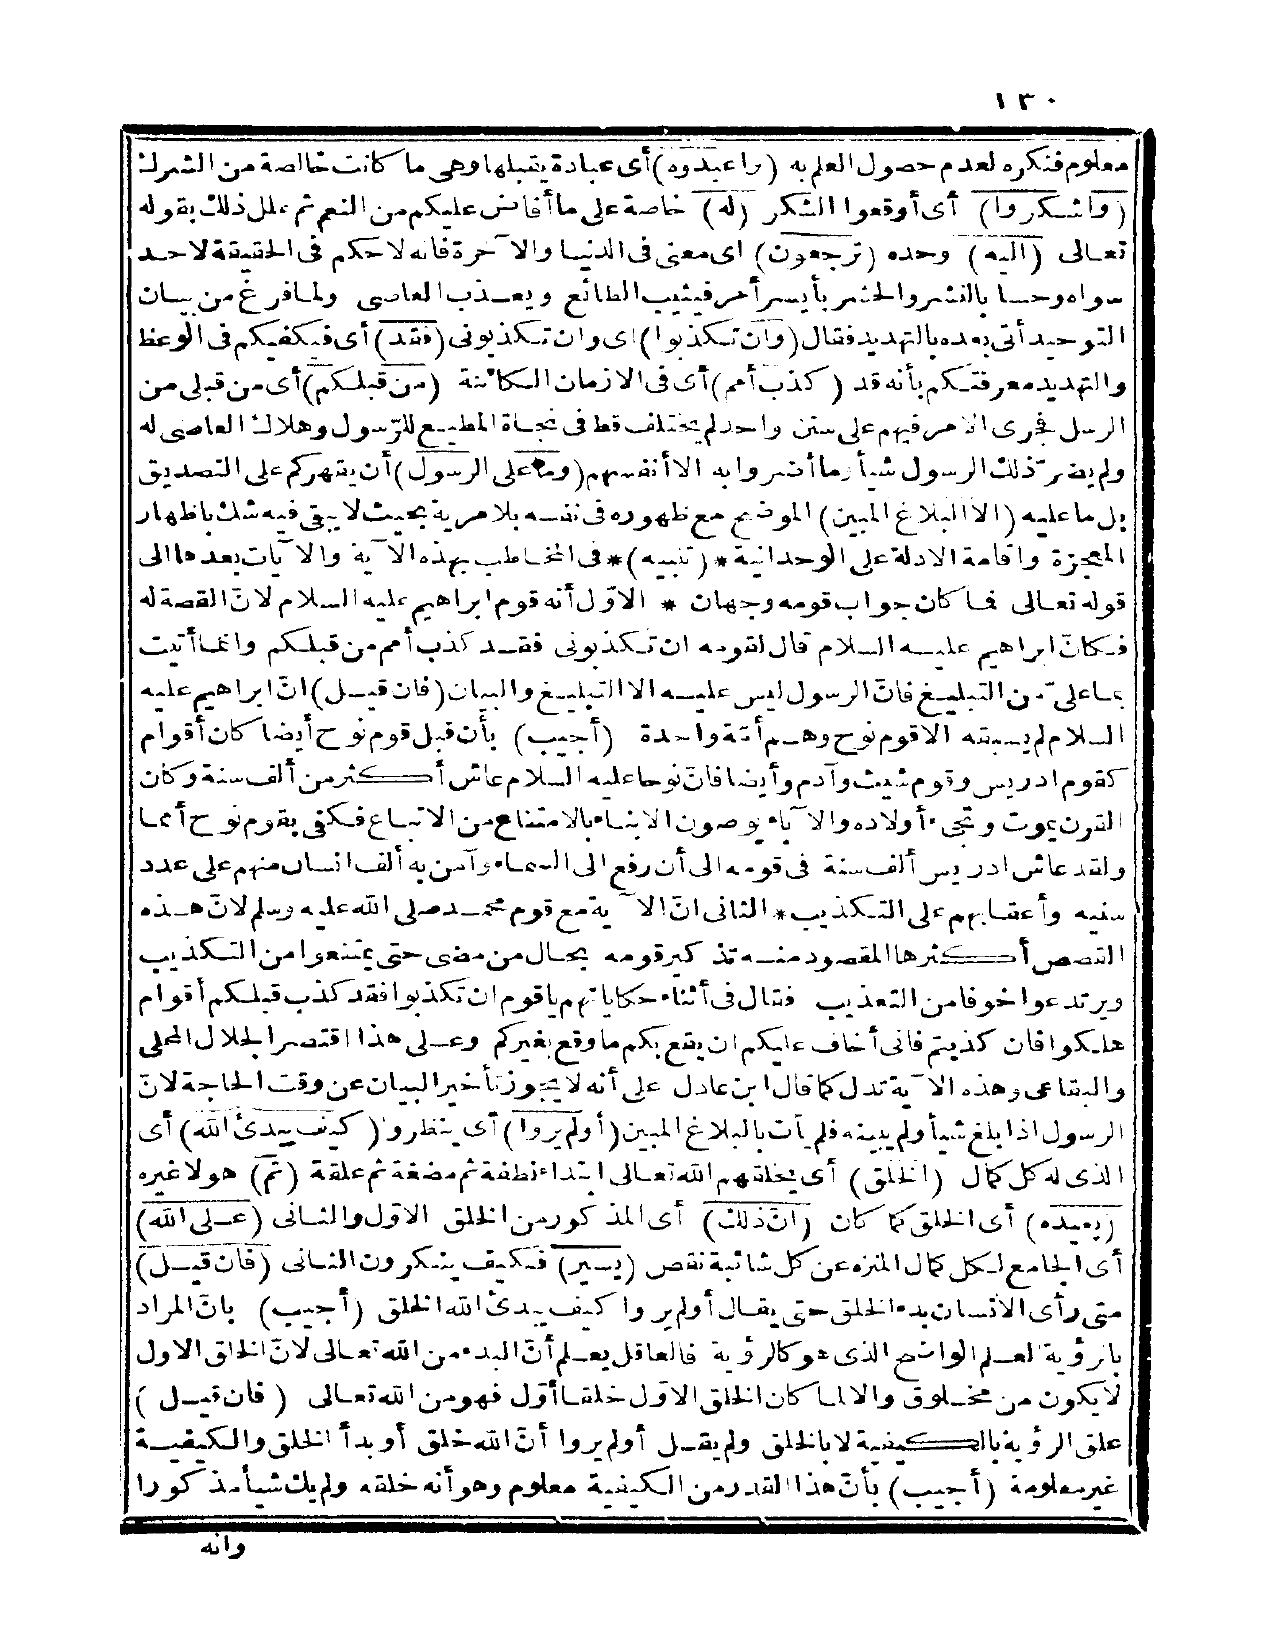 ١٣٠
معلوم فنكره لعدم حصول العلم به (واعبدوه) أى عبادة يقبلها وهى ما كانت خالصة من الشرك
(واشكروا) أى أوقعوا الشكر (له) خاصة على ما أفاض عليكم من النعم ثم علل ذلك بقوله
تعالى (اليه) وحده (ترجعون) اى معنى فى الدنيا والآخرة فانه لا حكم فى الحقيقة لاحد
سواه وحسا بالنشر والحشر بأيسر أمر فيثيب الطائع ويعذب العاصى ولما فرغ من بيان
التوحيد أتى بعده بالتهديد فقال (وان تكذبوا) اى وان تكذبونى (فقد) أى فيكفيكم فى الوعظ
والتهديد معرفتكم بأنه قد (كذب أمم) أى فى الازمان الكائنة (من قبلكم) أى من قبلى من
الرسل فجرى الامر فيهم على سنن واحد لم يختلف قط فى نجاة المطيع للرّسول وهلاك العاصى له
ولم يضرّ ذلك الرسول شيأ وما أضروا به الا أنفسهم (وما على الرسول) أن يقهركم على التصديق
بل ما عليه (الا البلاغ المبين) الموضح مع ظهوره فى نفسه بلا مرية بحيث لا يبقى فيه شك باظهار
المعجزة واقامة الادلة على الوحدانية * (تنبيه) * فى المخاطب بهذه الآية والآيات بعدها الى
قوله تعالى فما كان جواب قومه وجهان * الاوّل أنه قوم ابراهيم عليه السلام لانّ القصة له
فكانّ ابراهيم عليه السلام قال لقومه ان تكذبونى فقد كذب أمم من قبلكم وانما أتيت
بما علىّ من التبليغ فانّ الرسول ليس عليه الا التبليغ والبيان (فان قيل) انّ ابراهيم عليه
السلام لم يسبقه الا قوم نوح وهم أمّة واحدة (أجيب) بأن قبل قوم نوح أيضا كان أقوام
كقوم ادريس وقوم شيث وآدم وأيضا فانّ نوحا عليه السلام عاش أكثر من ألف سنة وكان
القرن يموت وتجىء أولاده والآباء يوصون الابناء بالامتناع من الاتباع فكفى بقوم نوح أمما
ولقد عاش ادريس ألف سنة فى قومه الى أن رفع الى السماء وآمن به ألف انسان منهم على عدد
سنيه وأعقابهم على التكذيب * الثانى انّ الآية مع قوم محمد صلى الله عليه وسلم لانّ هذه
القصص أكثرها المقصود منه تذكير قومه بحال من مضى حتى يمتنعوا من التكذيب
ويرتدعوا خوفا من التعذيب فقال فى أثناء حكاياتهم يا قوم ان تكذبوا فقد كذب قبلكم أقوام
هلكوا فان كذبتم فانى أخاف عليكم ان يقع بكم ما وقع بغيركم وعلى هذا اقتصر الجلال المحلى
والبقاعى وهذه الآية تدل كما قال ابن عادل على أنه لا يجوز تأخير البيان عن وقت الحاجة لانّ
الرسول اذا بلغ شيأ ولم يبينه فلم يأت بالبلاغ المبين (أولم يروا) أى ينظروا (كيف يبدئ الله) أى
الذى له كل كمال (الخلق) أى يخلقهم الله تعالى ابتداء نطفة ثم مضغة ثم علقة (ثم) هو لا غيره
(يعيده) أى الخلق كما كان (انّ ذلك) أى المذكور من الخلق الاوّل والثانى (على الله)
أى الجامع لكل كمال المنزه عن كل شائبة نقص (يسير) فكيف ينكرون الثانى (فان قيل)
متى رأى الانسان بدء الخلق حتى يقال أولم يروا كيف يبدئ الله الخلق (أجيب) بانّ المراد
بالرؤية العلم الواضح الذى هو كالرؤية فالعاقل يعلم أنّ البدء من الله تعالى لانّ الخلق الاول
لا يكون من مخلوق والا لما كان الخلق الاوّل خلقا أوّل فهو من الله تعالى (فان قيل)
علق الرؤية بالكيفية لا بالخلق ولم يقل أولم يروا أنّ الله خلق أو بدأ الخلق والكيفية
غير معلومة (أجيب) بأنّ هذا القدر من الكيفية معلوم وهو أنه خلقه ولم يك شيأ مذكورا
وانه